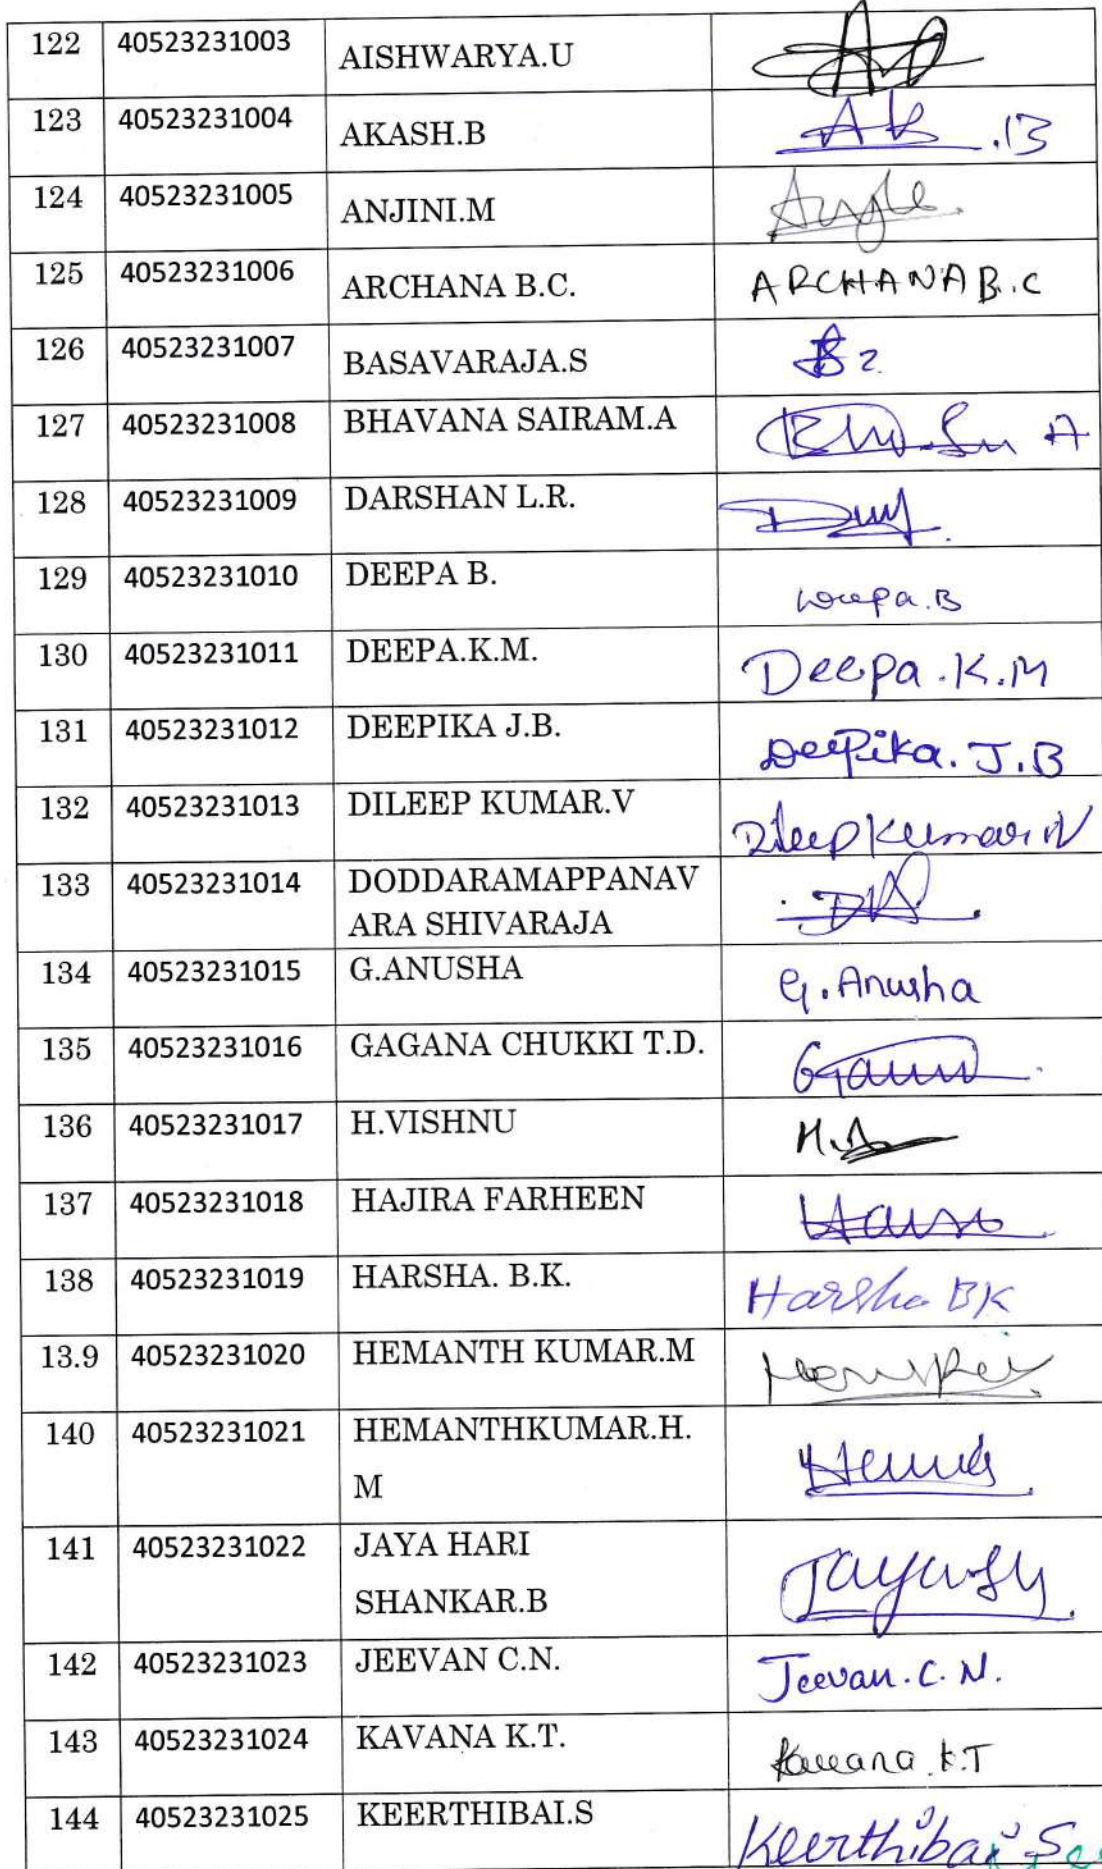 122 40523231003 AISHWARYA.U
123 40523231004 AKASH.B AB .B
124 40523231005 ANJINI.M
125 40523231006 ARCHANA B.C. ARCHANA B.C
126 40523231007 BASAVARAJA.S
127 40523231008 BHAVANA SAIRAM.A
128 40523231009 DARSHAN L.R.
129 40523231010 DEEPA B. Deepa.B
130 40523231011 DEEPA.K.M. Deepa.K.M
131 40523231012 DEEPIKA J.B. Deepika.J.B
132 40523231013 DILEEP KUMAR.V Dileep Kumar.V
133 40523231014 DODDARAMAPPANAV
ARA SHIVARAJA
134 40523231015 G.ANUSHA G.Anusha
135 40523231016 GAGANA CHUKKI T.D.
136 40523231017 H.VISHNU
137 40523231018 HAJIRA FARHEEN
138 40523231019 HARSHA. B.K. Harsha BK
13.9 40523231020 HEMANTH KUMAR.M
140 40523231021 HEMANTHKUMAR.H.
M
141 40523231022 JAYA HARI
SHANKAR.B
142 40523231023 JEEVAN C.N. Jeevan.C.N.
143 40523231024 KAVANA K.T. Kavana.K.T
144 40523231025 KEERTHIBAI.S Keerthibai S